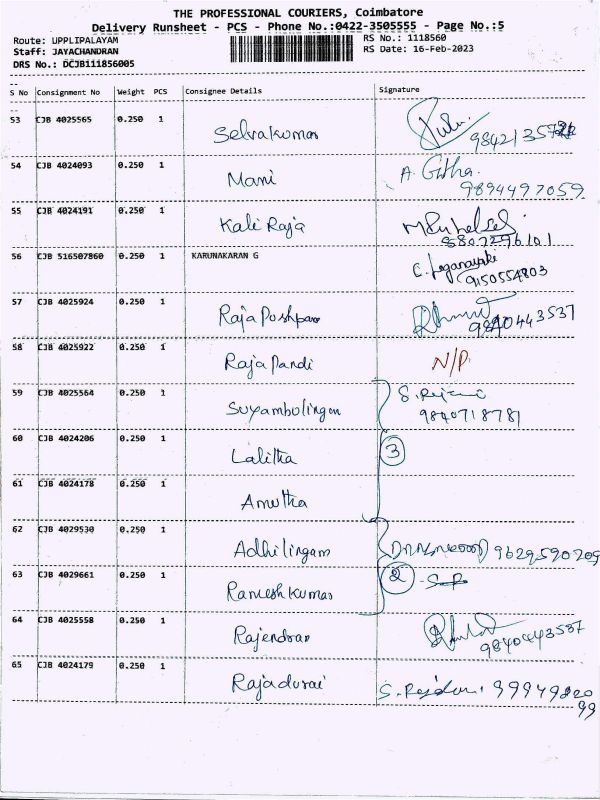 THE PROFESSIONAL COURIERS, Coimbatore
Delivery Runsheet - PCS - Phone No.:0422-3505555 - Page No.:5
Route: UPPLIPALAYAM RS No.: 1118560
Staff: JAYACHANDRAN RS Date: 16-Feb-2023
DRS No.: DCJB111856005
S No Consignment No Weight PCS Consignee Details Signature
53 CJB 4025565 0.250 1 Selvakumar
54 CJB 4024093 0.250 1 Mani A. Githa. 9894497059
55 CJB 4024191 0.250 1 Kali Raja 8807296101
56 CJB 516507860 0.250 1 KARUNAKARAN G C. Loganayaki 9150554803
57 CJB 4025924 0.250 1 Raja Poshpam 9840443537
58 CJB 4025922 0.250 1 Raja Pandi N/P.
59 CJB 4025564 0.250 1 Suyambulingam 9840718781
60 CJB 4024206 0.250 1 Lalitha 3
61 CJB 4024178 0.250 1 Amutha
62 CJB 4029530 0.250 1 Adhilingam 9629590209
63 CJB 4029661 0.250 1 Ramesh Kumar 2
64 CJB 4025558 0.250 1 Rajendran 9840443537
65 CJB 4024179 0.250 1 Rajadurai